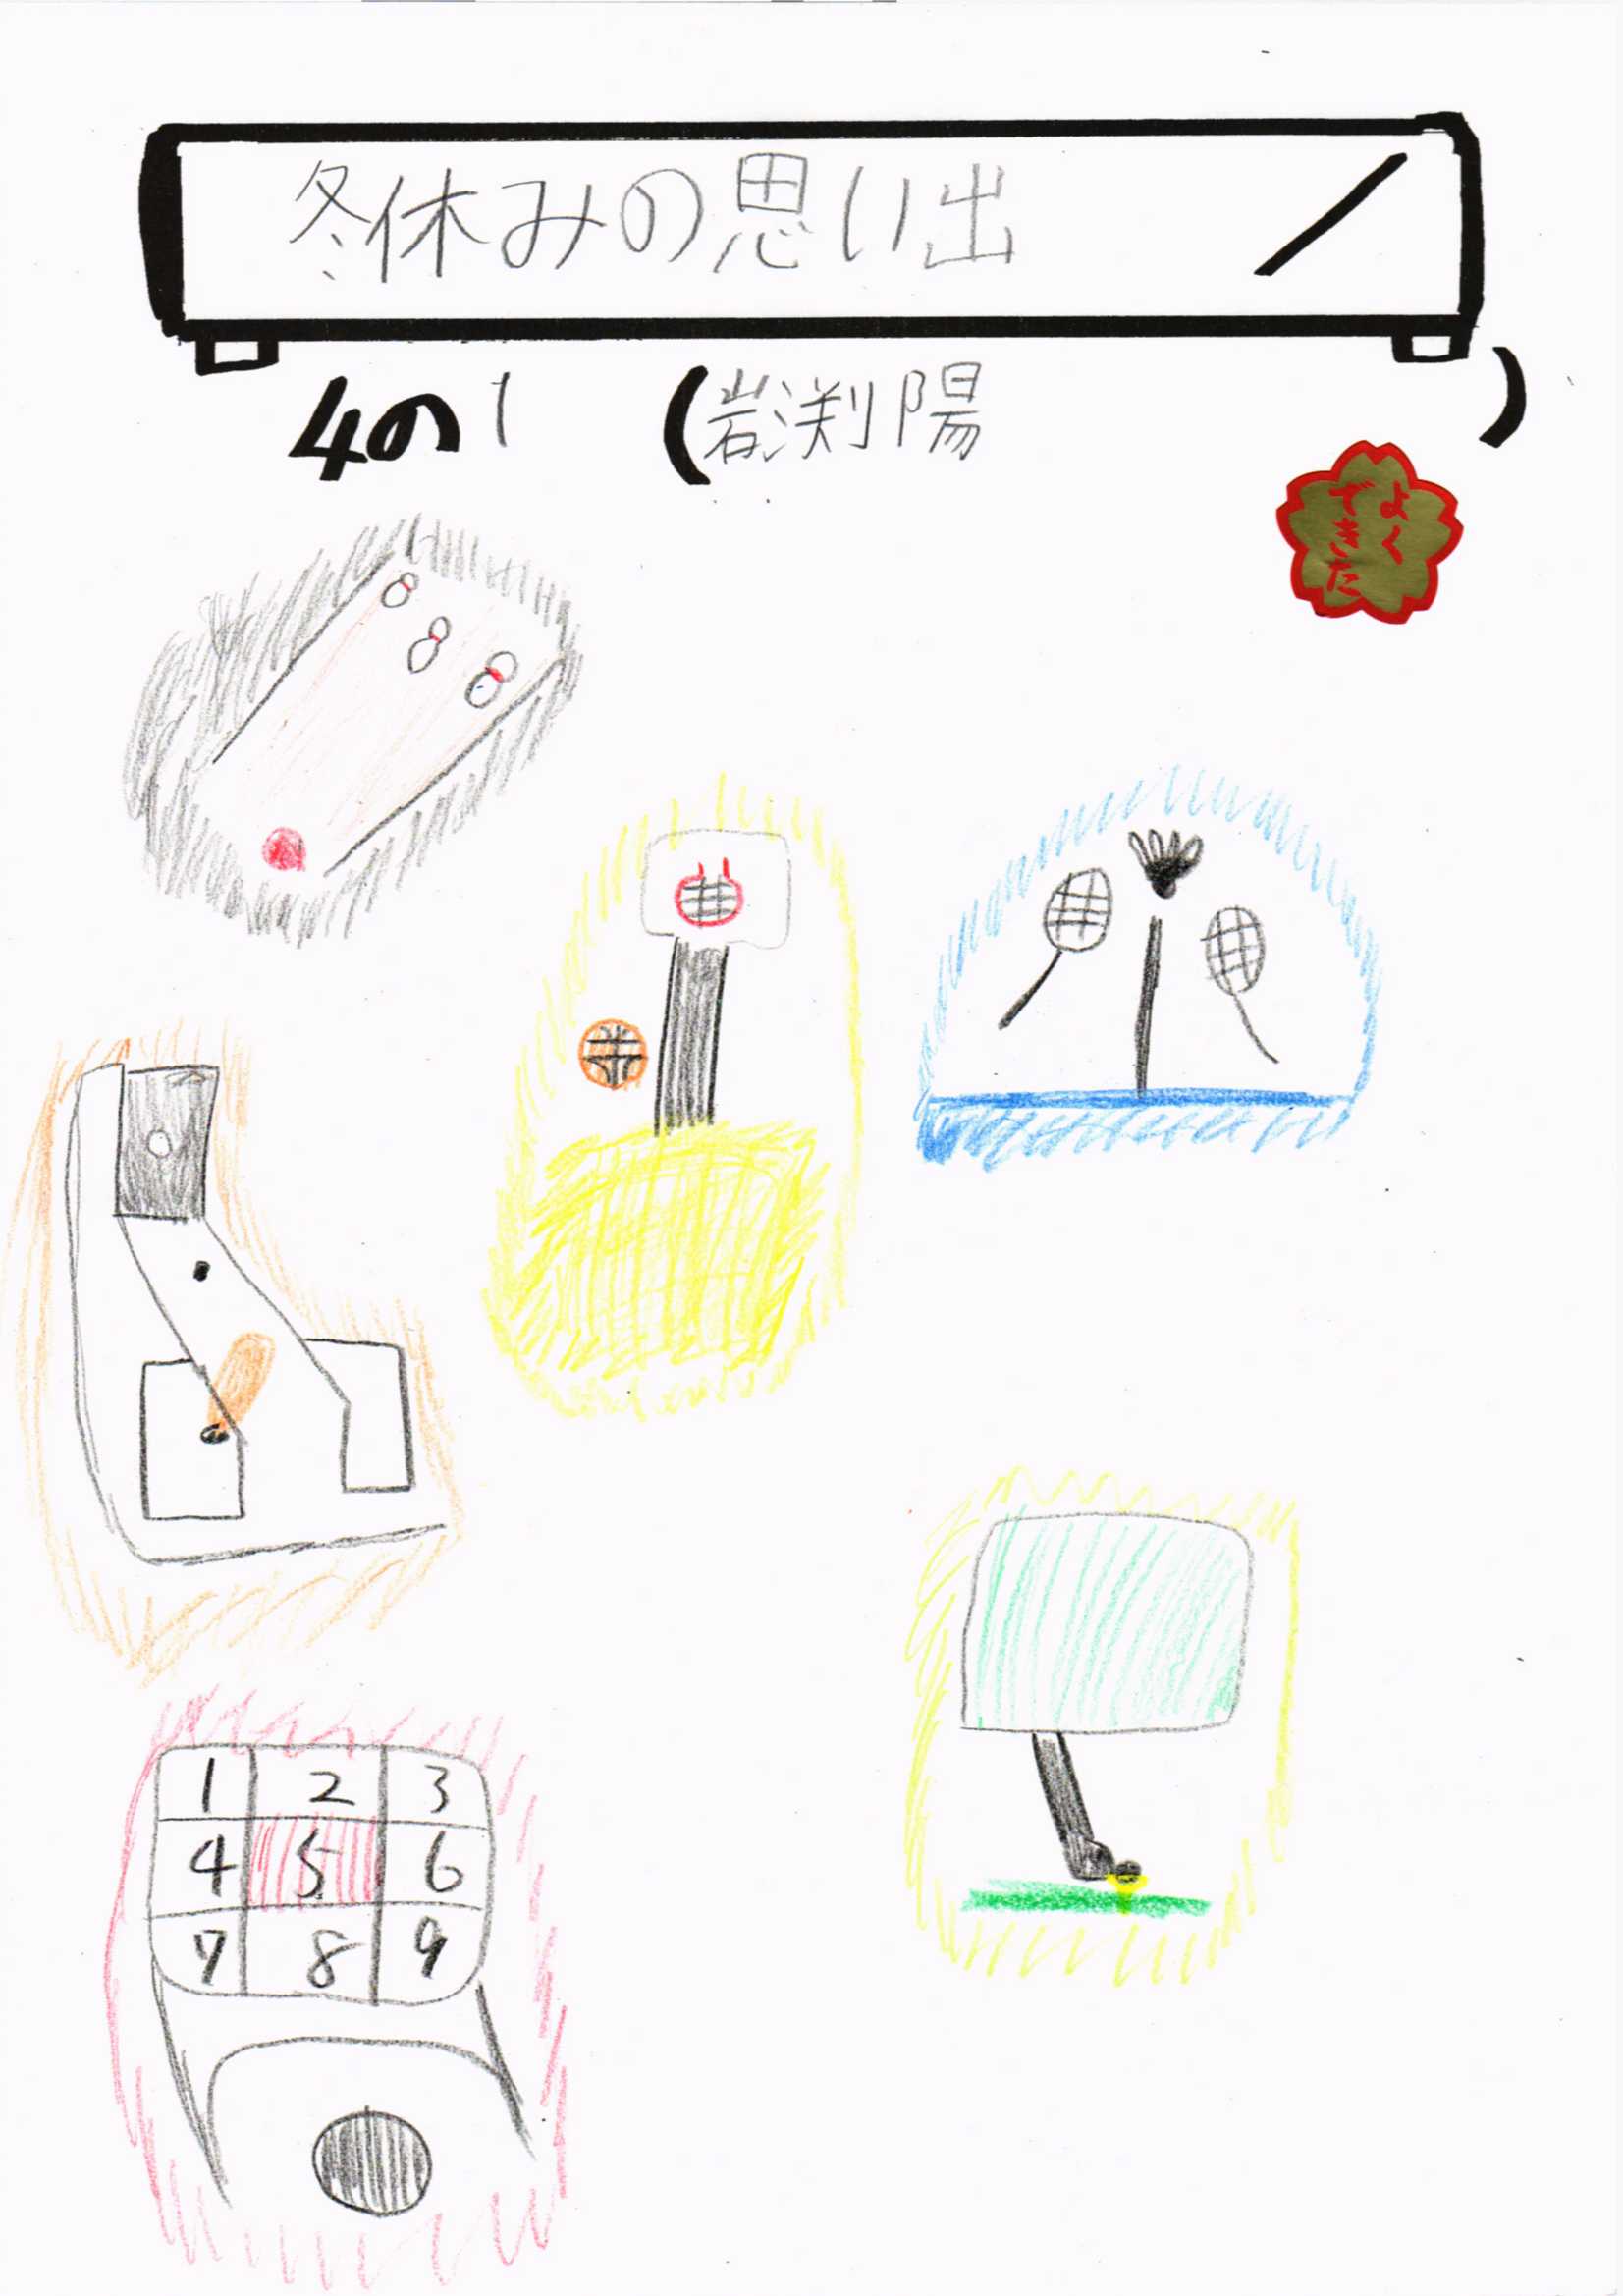 冬休みの思い出
4の1 (岩渕陽 )
よく
できた
1 2 3
4 5 6
7 8 9